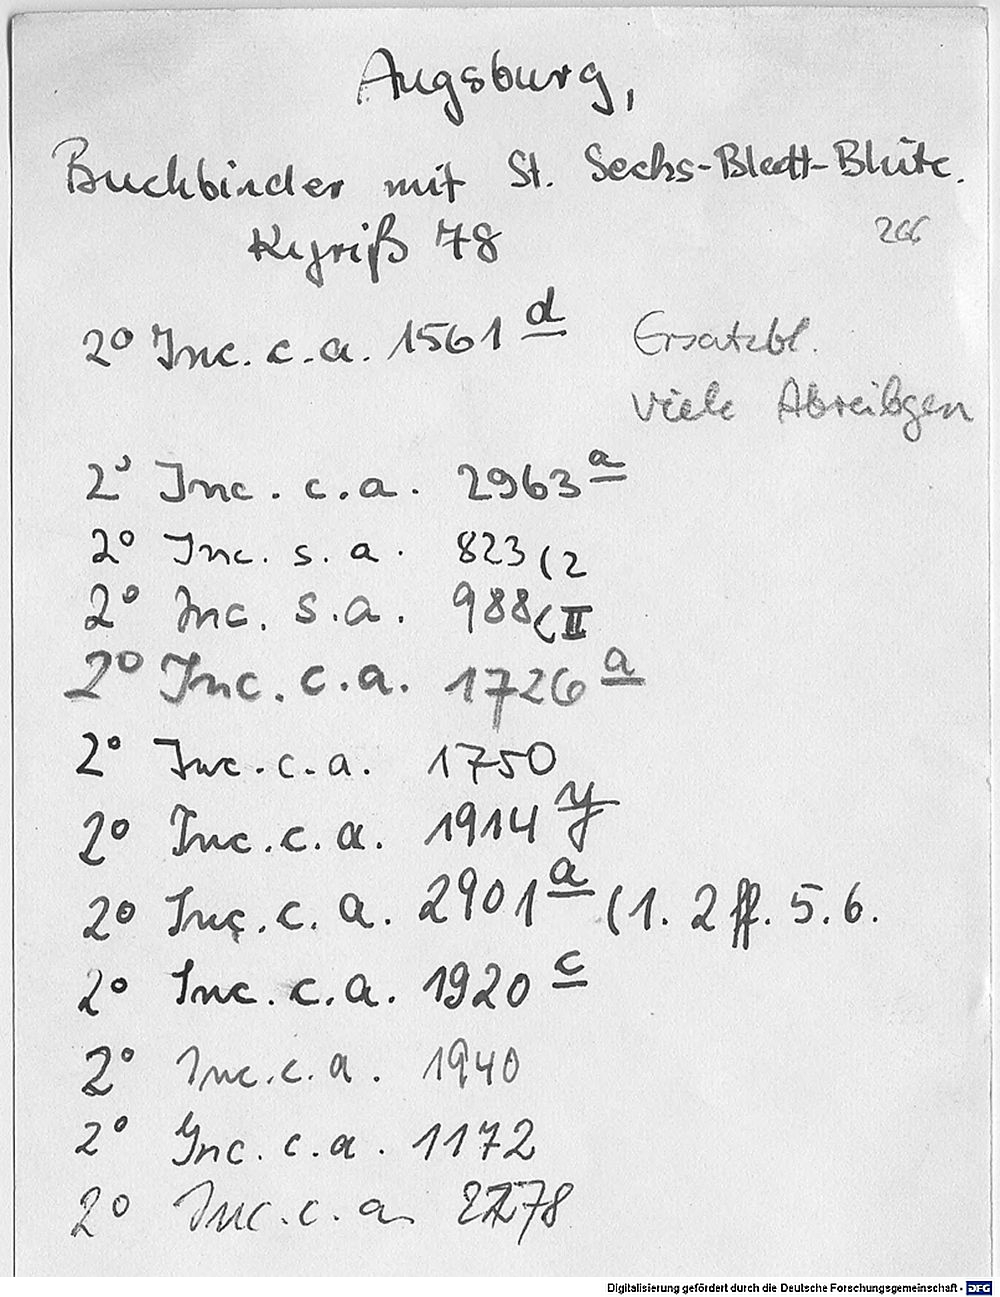 Augsburg,
Buchbinder mit St. Sechs-Blatt-Blüte.
Kyriß 78
2° Inc. c. a. 1561 d
Ersatzbl.
viele Abreibgen
2° Inc. c. a. 2963 a
2° Inc. s. a. 823 (2
2° Inc. s. a. 988 (II
2° Inc. c. a. 1726 a
2° Inc. c. a. 1750
2° Inc. c. a. 1914 y
2° Inc. c. a. 2901 a (1. 2 ff. 5. 6.
2° Inc. c. a. 1920 c
2° Inc. c. a. 1940
2° Inc. c. a. 1172
2° Inc. c. a.
Digitalisierung gefördert durch die Deutsche Forschungsgemeinschaft - DFG